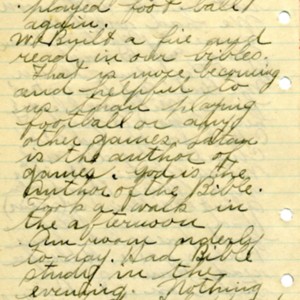 played foot ball
again.
We Built a fire and
read in our bibles.
That is more becoming
and helpful to
us than playing
football or any
other games. Satan
is the author of
games. God is the
author of the Bible.
Took a walk in
the afternoon
Am room orderly
to-day. Had Bible
study in the
evening. Nothing